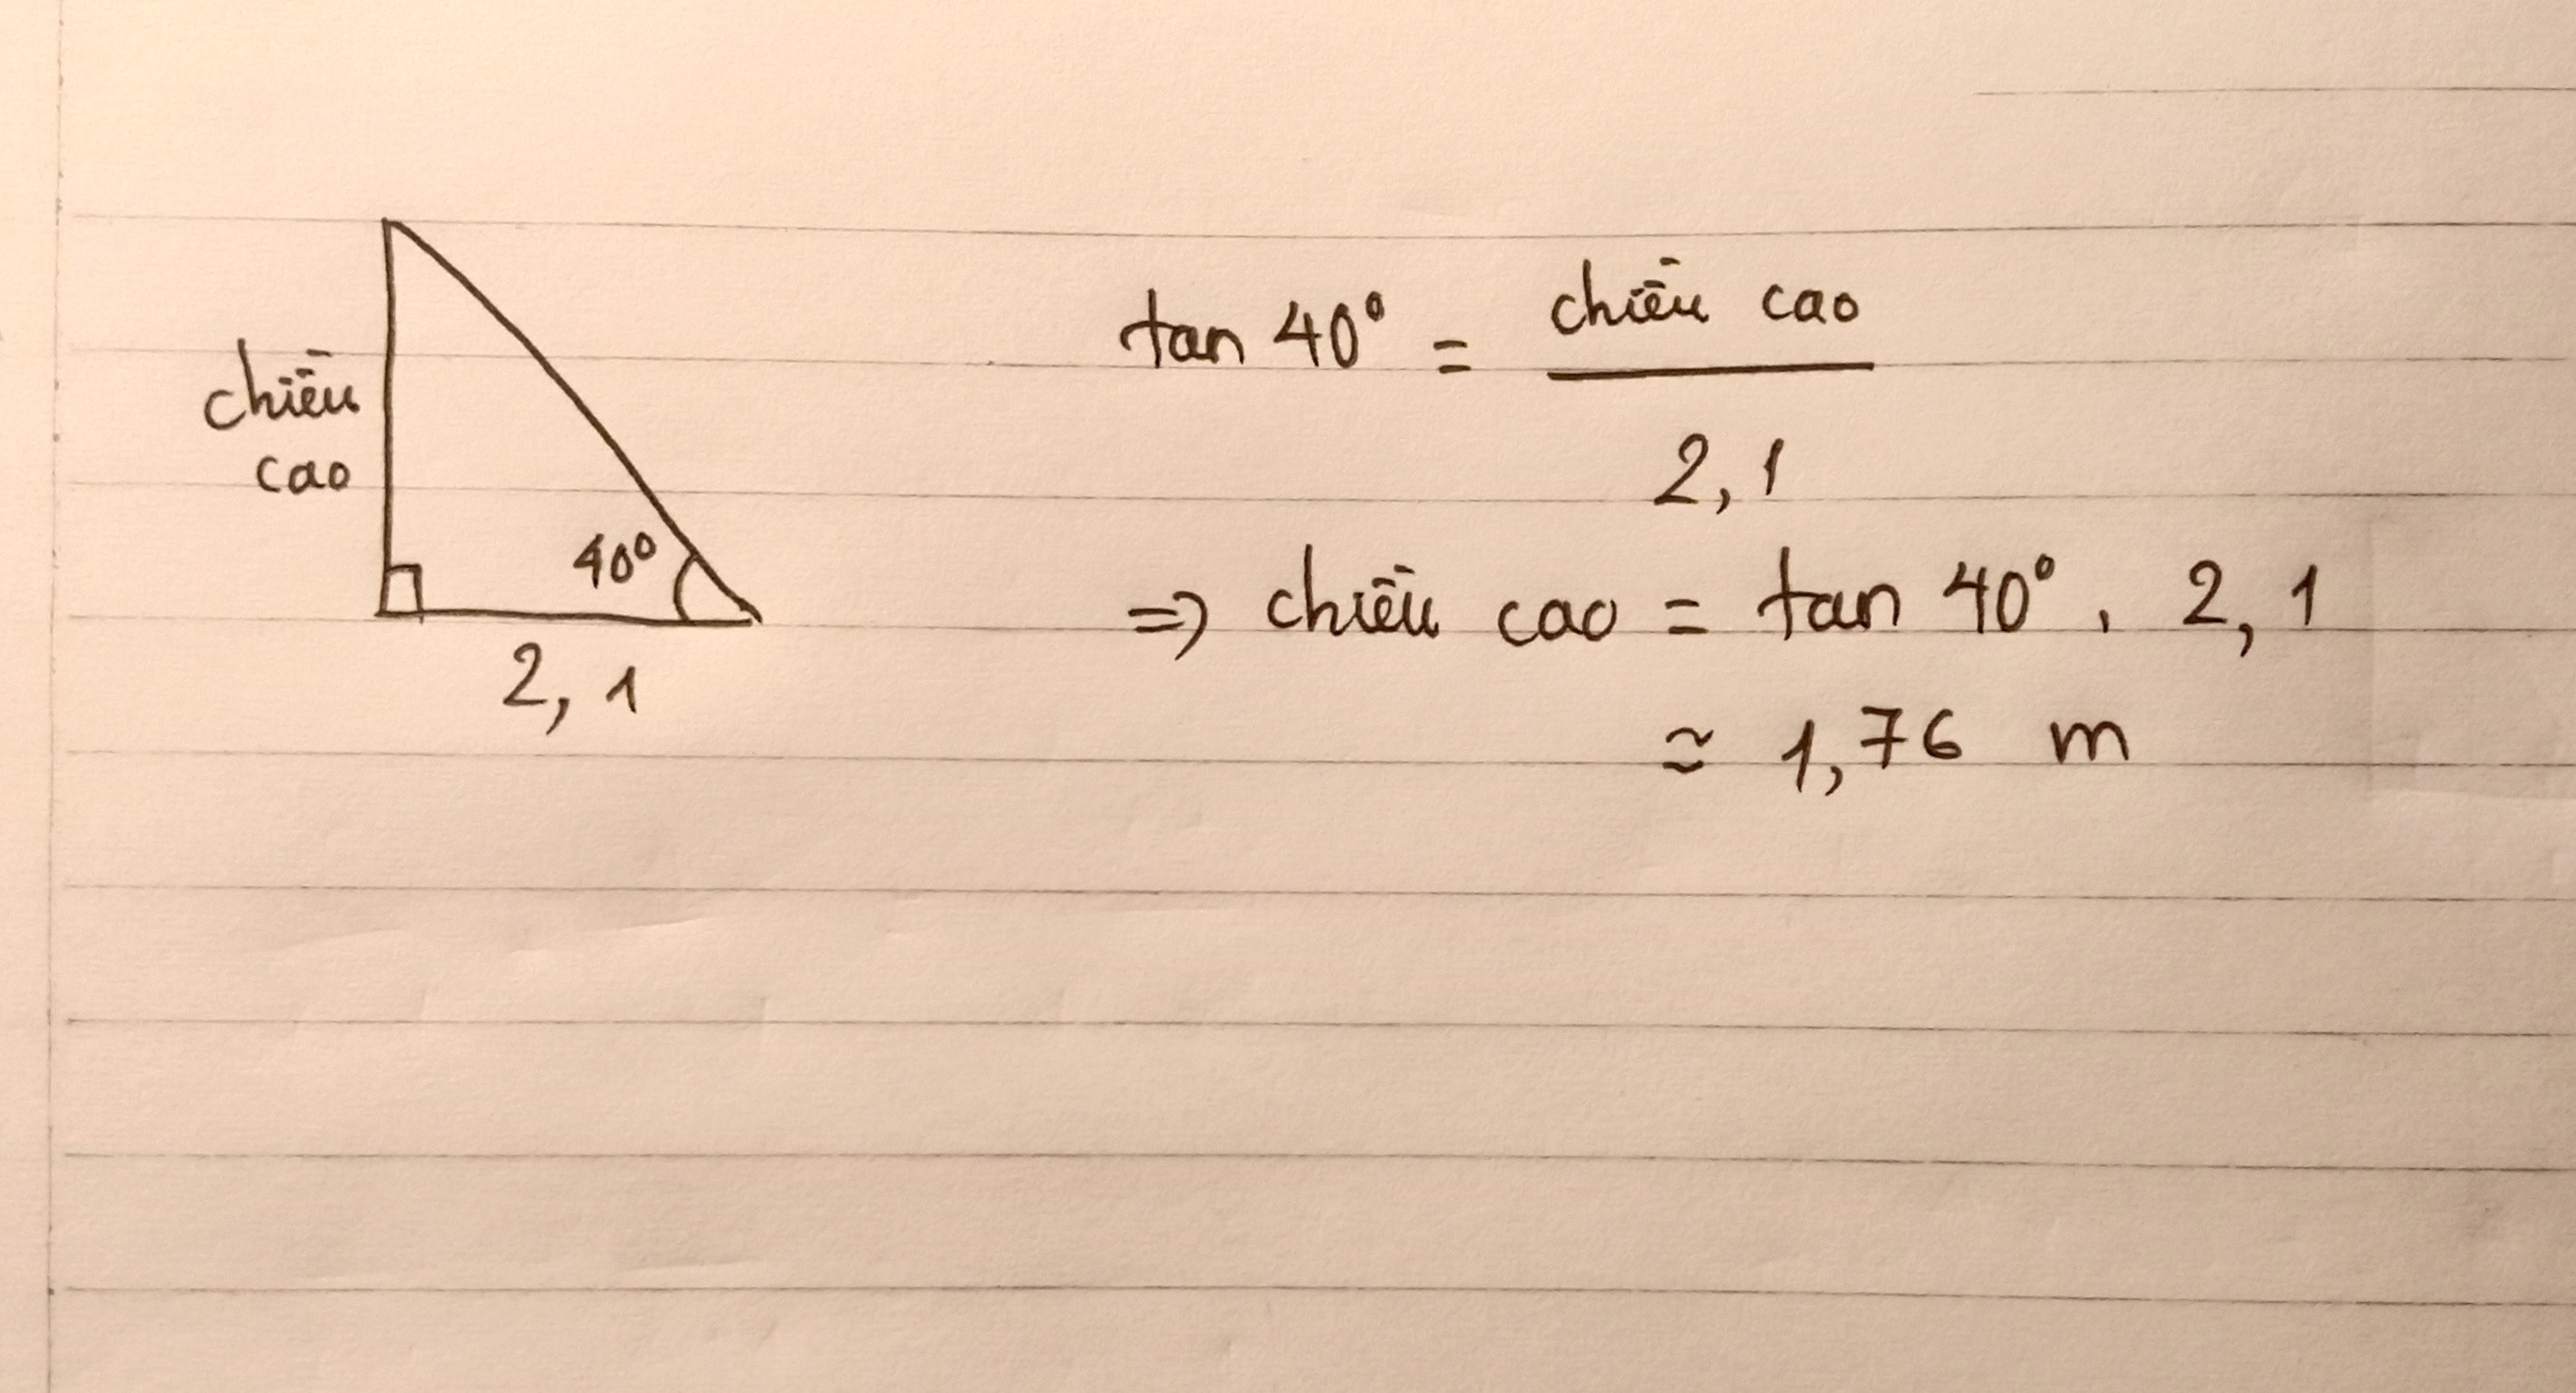 chiều
cao
40°
2,1
tan 40° = chiều cao
2,1
=> chiều cao = tan 40° . 2,1
≈ 1,76 m